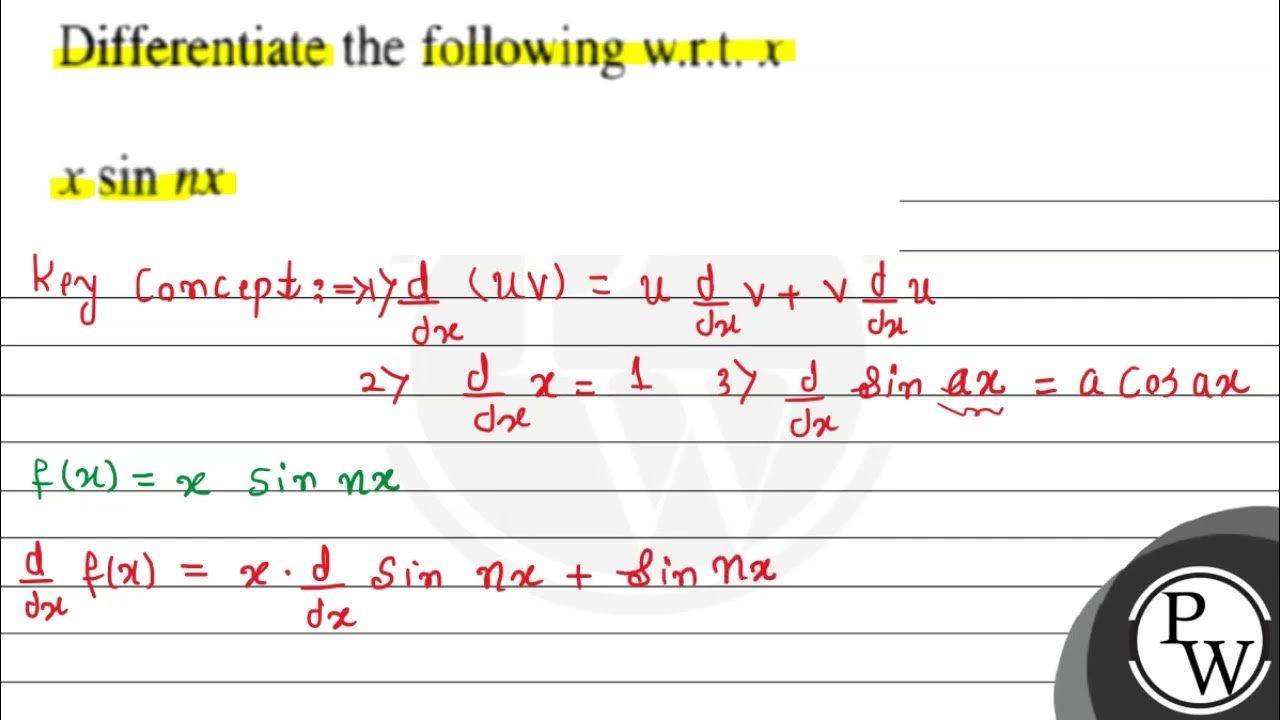 Differentiate the following w.r.t. x
x sin nx
Key Concept:⇒1> d/dx (uv) = u d/dx v + v d/dx u
2> d/dx x = 1 3> d/dx sin ax = a cos ax
f(x) = x sin nx
d/dx f(x) = x · d/dx sin nx + sin nx
PW
PW